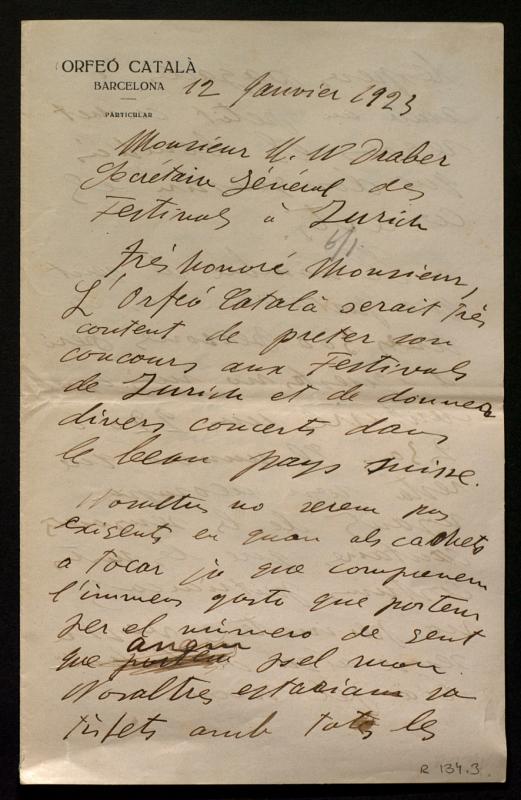 ORFEÓ CATALÀ
BARCELONA
PARTICULAR
12 Janvier 1923
Monsieur H. W Draber
Secrétaire Général des
Festivals à Zurich
Très honoré Monsieur,
L'Orfeó Català serait très
content de preter son
concours aux Festivals
de Zurich et de donner
divers concerts dans
le beau pays suisse.
Nosaltres no serem pas
exigents en quan als cachets
a tocar ja que comprenem
l'immens gasto que portem
per el número de gent
que anam pel mon.
Nosaltres estariam sa
tisfets amb totes les
R 134.3